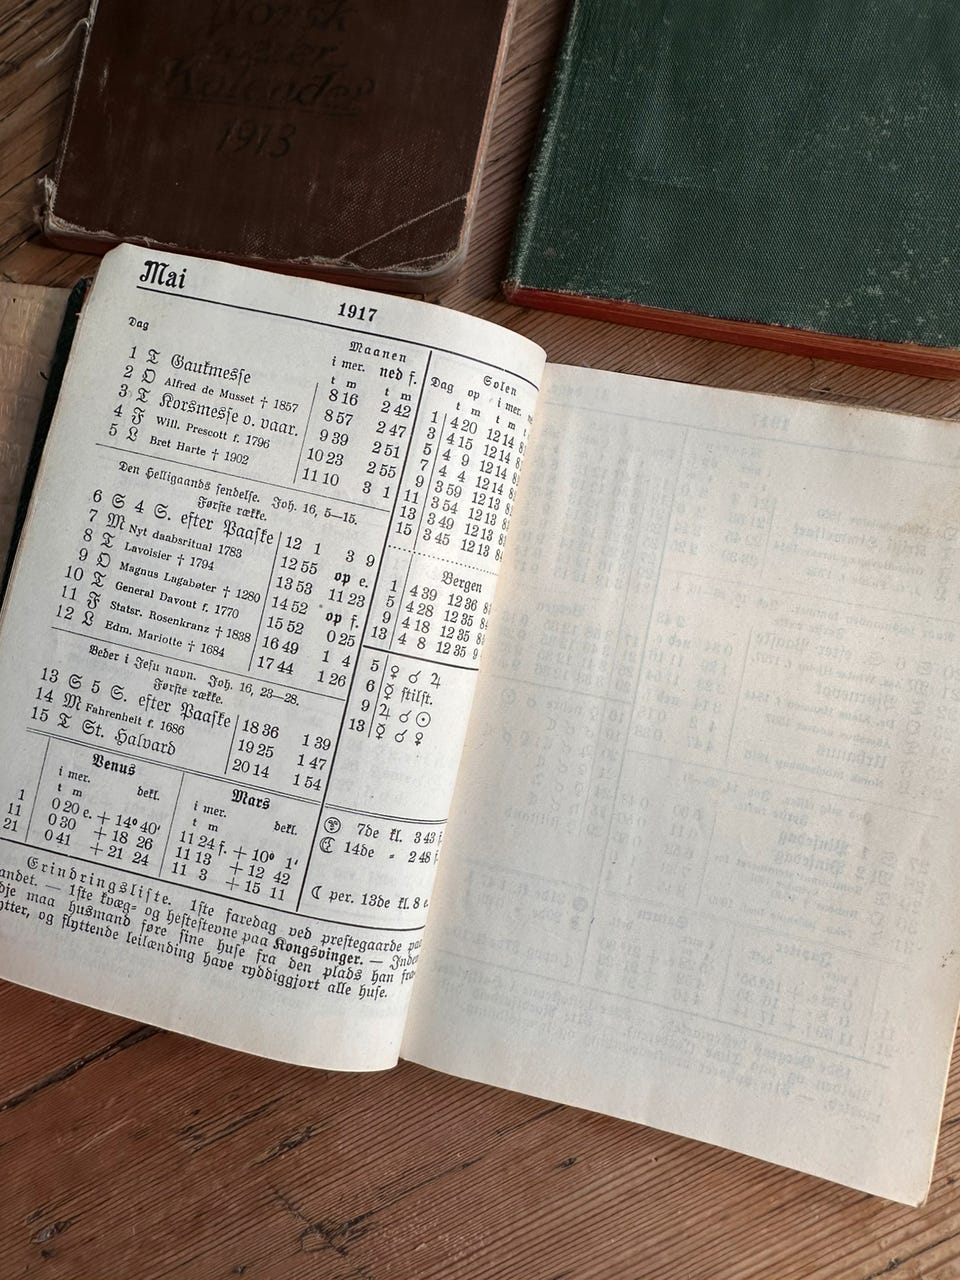 Norsk
Kalender
1913
Mai
1917
Dag
Maanen
i mer. ned f.
t m t m
1 T Gaukmesse 8 16 2 42
2 O Alfred de Musset † 1857 8 57 2 47
3 T Korsmesse o. vaar. 9 39 2 51
4 F Will. Prescott f. 1796 10 23 2 55
5 L Bret Harte † 1902 11 10 3 1
Den Helligaands sendelse. Joh. 16, 5—15.
Første række.
6 S 4 S. efter Paaske 12 1 3 9
7 M Nyt daabsritual 1783 12 55 op e.
8 T Lavoisier † 1794 13 53 11 23
9 O Magnus Lagabøter † 1280 14 52 op f.
10 T General Davout f. 1770 15 52 0 25
11 F Statsr. Rosenkranz † 1838 16 49 1 4
12 L Edm. Mariotte † 1684 17 44 1 26
Beder i Jesu navn. Joh. 16, 23—28.
Første række.
13 S 5 S. efter Paaske 18 36 1 39
14 M Fahrenheit f. 1686 19 25 1 47
15 T St. Halvard 20 14 1 54
Solen
Dag op i mer.
t m t m t
1 4 20 12 14 8
3 4 15 12 14 8
5 4 9 12 14 8
7 4 4 12 14 8
9 3 59 12 13 8
11 3 54 12 13 8
13 3 49 12 13 8
15 3 45 12 13 8
Bergen
1 4 39 12 36 8
5 4 28 12 35 8
9 4 18 12 35 8
13 4 8 12 35 9
5 ♀ ☌ ♃
6 ☿ stilst.
9 ♃ ☌ ☉
13 ☿ ☌ ♀
Venus
i mer. dekl.
t m
1 0 20 e. + 14° 40'
11 0 30 + 18 26
21 0 41 + 21 24
Mars
i mer. dekl.
t m
11 24 f. + 10° 1'
11 13 + 12 42
11 3 + 15 11
7de kl. 3 43 f.
14de „ 2 48 f.
☾ per. 13de kl. 8 e.
Erindringsliste. 1ste faredag ved prestegaarde paa
andet. — 1ste kvæg- og hestestevne paa Kongsvinger. — Inden
maa husmand føre sine huse fra den plads han fra-
ytter, og flyttende leilænding have ryddiggjort alle huse.